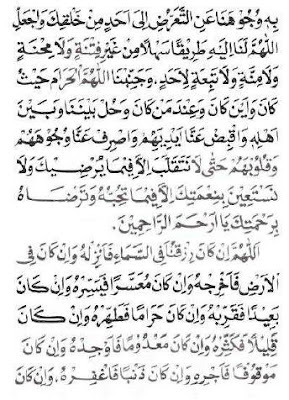 بِهِ وُجُوْهَنَا عَنِ التَّعَرُّضِ اِلَى اَحَدٍ مِنْ خَلْقِكَ وَاجْعَلِ
اللّٰهُمَّ لَنَا اِلَيْهِ طَرِيْقًا سَهْلًا مِنْ غَيْرِ فِتْنَةٍ وَلَا مِحْنَةٍ
وَلَا مِنَّةٍ وَلَا تَبِعَةٍ لِاَحَدٍ، وَجَنِّبْنَا اللّٰهُمَّ الْحَرَامَ حَيْثُ
كَانَ وَاَيْنَ كَانَ وَعِنْدَ مَنْ كَانَ وَحُلْ بَيْنَنَا وَبَيْنَ
اَهْلِهِ وَاقْبِضْ عَنَّا اَيْدِيَهُمْ وَاصْرِفْ عَنَّا وُجُوْهَهُمْ
وَقُلُوْبَهُمْ حَتَّى لَا نَتَقَلَّبَ اِلَّا فِيْمَا يُرْضِيْكَ وَلَا
نَسْتَعِيْنَ بِنِعْمَتِكَ اِلَّا فِيْمَا تُحِبُّهُ وَتَرْضَاهُ
بِرَحْمَتِكَ يَا اَرْحَمَ الرَّاحِمِيْنَ.
اَللّٰهُمَّ اِنْ كَانَ رِزْقُنَا فِي السَّمَاءِ فَاَنْزِلْهُ وَاِنْ كَانَ فِي
الْاَرْضِ فَاَخْرِجْهُ وَاِنْ كَانَ مُعَسَّرًا فَيَسِّرْهُ وَاِنْ كَانَ
بَعِيْدًا فَقَرِّبْهُ وَاِنْ كَانَ حَرَامًا فَطَهِّرْهُ وَاِنْ كَانَ
قَلِيْلًا فَكَثِّرْهُ وَاِنْ كَانَ مَعْدُوْمًا فَاَوْجِدْهُ وَاِنْ كَانَ
مَوْقُوْفًا فَاَجْرِهِ وَاِنْ كَانَ ذَنْبًا فَاغْفِرْهُ، وَاِنْ كَانَ